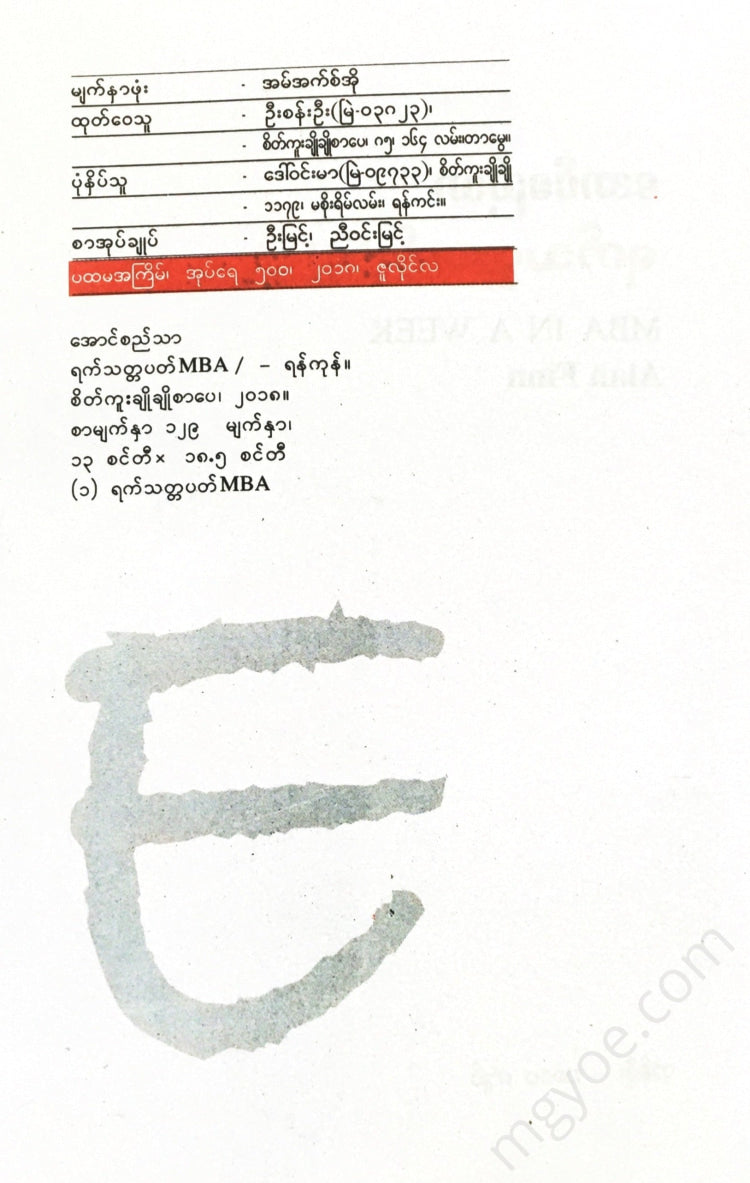 မျက်နှာဖုံး - အမ်အက်စ်အို
ထုတ်ဝေသူ - ဦးစန်းဦး(မြဲ-၀၃၈၂၃)၊
- စိတ်ကူးချိုချိုစာပေ၊ ၈၅၊ ၁၆၄ လမ်း၊တာမွေ။
ပုံနှိပ်သူ - ဒေါ်ဝင်းမာ(မြဲ-၀၉၇၃၃)၊ စိတ်ကူးချိုချို
- ၁၁၇၉၊ မစိုးရိမ်လမ်း၊ ရန်ကင်း။
စာအုပ်ချုပ် - ဦးမြင့်၊ ညီဝင်းမြင့်
ပထမအကြိမ်၊ အုပ်ရေ ၅၀၀၊ ၂၀၁၈၊ ဇူလိုင်လ
အောင်စည်သာ
ရက်သတ္တပတ် MBA / – ရန်ကုန်။
စိတ်ကူးချိုချိုစာပေ၊ ၂၀၁၈။
စာမျက်နှာ ၁၂၉ မျက်နှာ၊
၁၃ စင်တီ × ၁၈.၅ စင်တီ
(၁) ရက်သတ္တပတ် MBA
MBA IN A WEEK
Alan Finn
mgyoe.com